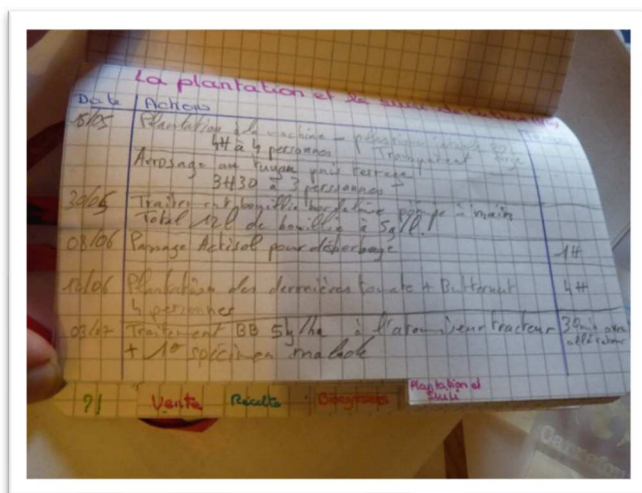 La plantation et le suivi
Date Actions
15/05 Plantation à la machine –
4H à 4 personnes
Arrosage au tuyau puis
3H30 à 3 personnes
30/05 Traitement bouillie bordelaise pompe à main
Total 12l de bouillie à 5g/l.
08/06 Passage Actisol pour désherbage 1H
12/06 Plantation des dernières tomate + Butternut 4H
4 personnes
03/07 Traitement BB à l'atomiseur tracteur 30min
+ 1er spécimen malade
Vente Récolte Plantation et
Suivi